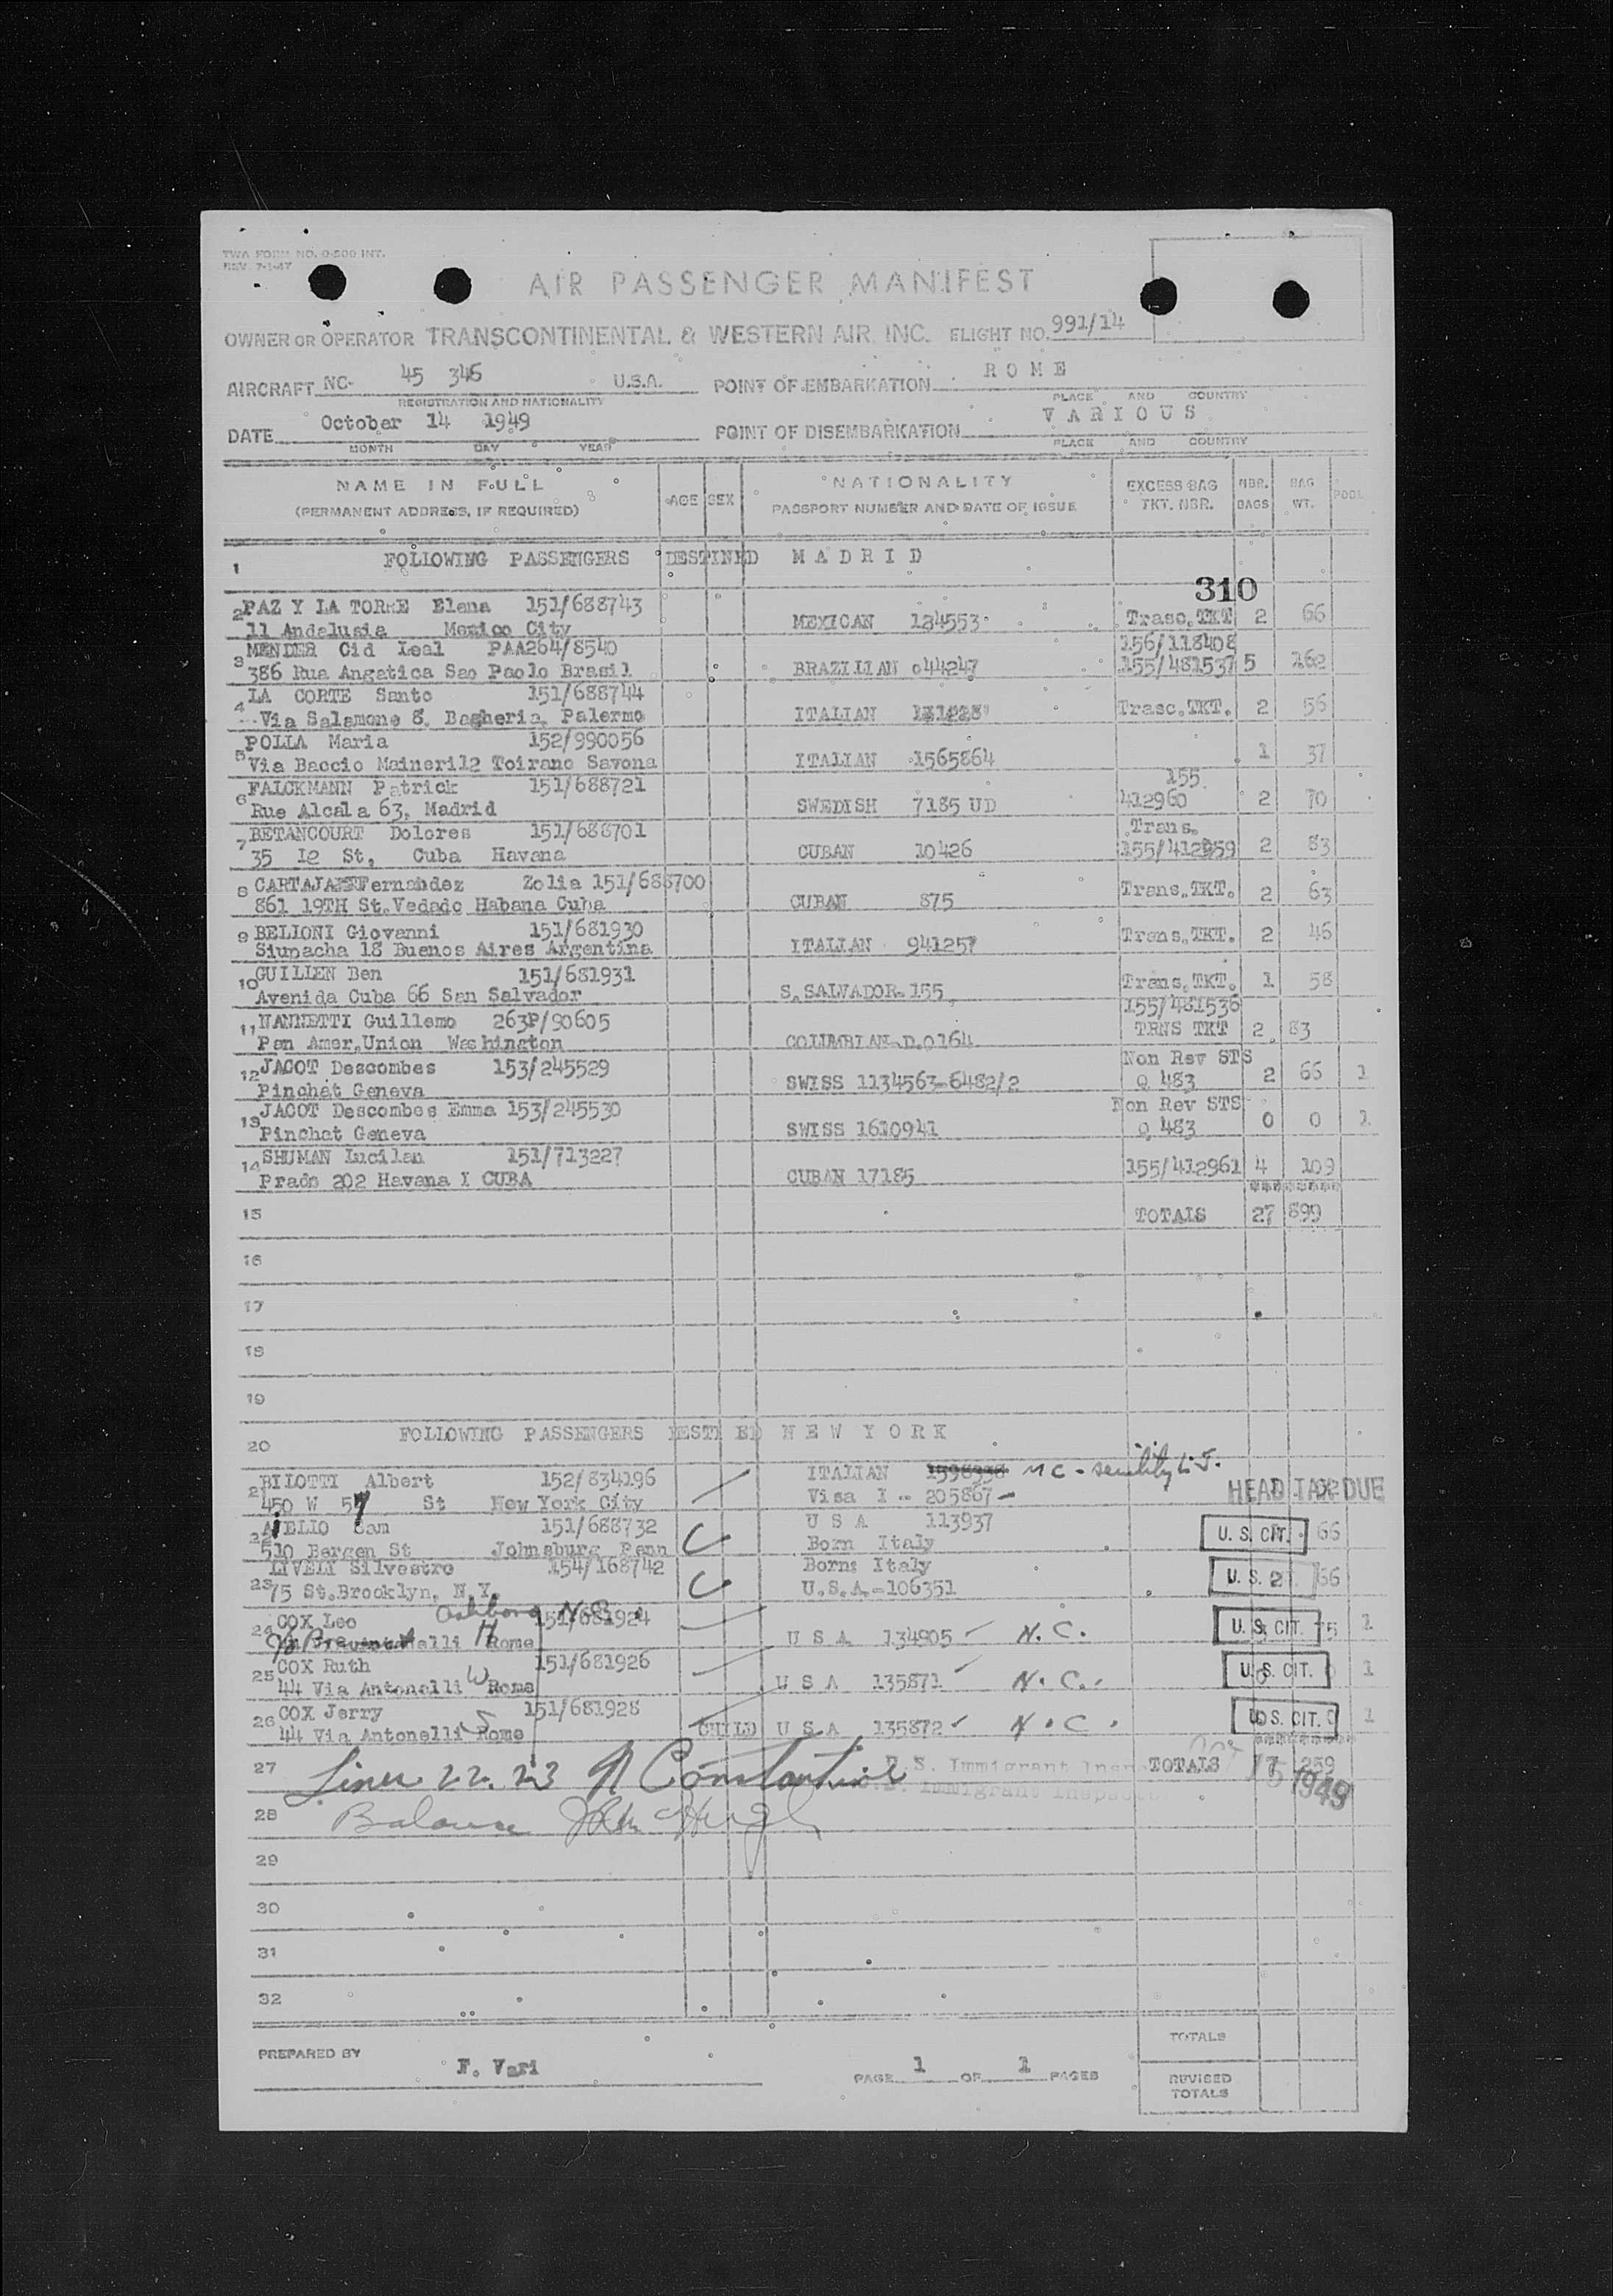 TWA FORM NO. 0-500 INT.
REV. 7-1-47
AIR PASSENGER MANIFEST
OWNER OR OPERATOR TRANSCONTINENTAL & WESTERN AIR, INC. FLIGHT NO. 991/14
AIRCRAFT NC- 45 346 U.S.A. POINT OF EMBARKATION R O M E
REGISTRATION AND NATIONALITY PLACE AND COUNTRY
DATE October 14 1949 POINT OF DISEMBARKATION V A R I O U S
MONTH DAY YEAR PLACE AND COUNTRY
NAME IN FULL AGE SEX NATIONALITY EXCESS BAG NBR. BAG POOL
(PERMANENT ADDRESS, IF REQUIRED) PASSPORT NUMBER AND DATE OF ISSUE TKT. NBR. BAGS WT.
1 FOLLOWING PASSENGERS DESTINED M A D R I D
310
2 PAZ Y LA TORRE Elena 151/688743 MEXICAN 134553 Trasc.TKT 2 66
11 Andalusia Mexico City
3 MENDER Cid Leal PAA264/8540 156/118408
386 Rua Angatica Sao Paolo Brasil BRAZILIAN 044247 155/481537 5 162
4 LA CORTE Santo 151/688744
Via Salamone 8. Bagheria. Palermo ITALIAN Trasc.TKT. 2 56
5 POLLA Maria 152/990056
Via Baccio Maineri12 Toirano Savona ITALIAN 1565864 1 37
6 FALCKMANN Patrick 151/688721 155
Rue Alcala 63, Madrid SWEDISH 7185 UD 412960 2 70
7 BETANCOURT Dolores 151/688701 Trans.
35 I2 St, Cuba Havana CUBAN 10426 155/412959 2 83
8 Fernandez Zolia 151/688700 Trans.TKT. 2 63
861 19TH St.Vedado Habana Cuba CUBAN 875
9 BELIONI Giovanni 151/681930 Trans.TKT. 2 46
Siupacha 18 Buenos Aires Argentina ITALIAN 941257
10 GUILLEN Ben 151/681931 Trans.TKT. 1 58
Avenida Cuba 66 San Salvador S.SALVADOR-155 155/481536
11 NANNETTI Guillemo 263P/90605 TRNS TKT 2 83
Pan Amer.Union Washington COLUMBIAN D.0164
12 JACOT Descombes 153/245529 Non Rev STS
Pinchat Geneva SWISS 1134563-6482/2 Q 483 2 66 1
13 JACOT Descombes Emma 153/245530 Non Rev STS
Pinchat Geneva SWISS 1610941 Q 483 0 0 1
14 SHUMAN Lucilan 151/713227 155/412961 4 109
Prado 202 Havana I CUBA CUBAN 17185
15 TOTALS 27 899
16
17
18
19
20 FOLLOWING PASSENGERS N E W Y O R K
21 BILOTTI Albert 152/834196 ITALIAN
450 W 57 St New York City Visa I - 205867 HEAD TAX DUE
22 AiELLO Sam 151/688732 U S A 113937
510 Bergen St Johnsburg Penn Born Italy U. S. CIT. 66
23 LIVELY Silvestro 154/168742 Born: Italy
75 St.Brooklyn, N.Y. U.S.A.-106351 U. S. 66
24 COX Leo Ashboro N.C. 151/681924
H Rome U S A 134905 N.C. U. S. CIT. 1
25 COX Ruth 151/681926
44 Via Antonelli W Rome U S A 135871 N.C. U. S. CIT. 1
26 COX Jerry 151/681928
44 Via Antonelli S Rome CHILD U S A 135872 N.C. U. S. CIT. 1
27 Lines 22. 23 N Constantine U. S. Immigrant Inspector TOTALS 259
1949
28 Balance
29
30
31
32
TOTALS
PREPARED BY F. Vari PAGE 1 OF 1 PAGES
REVISED
TOTALS